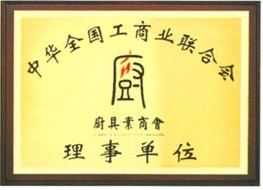 中华全国工商业联合会
廚具業商會
理事单位